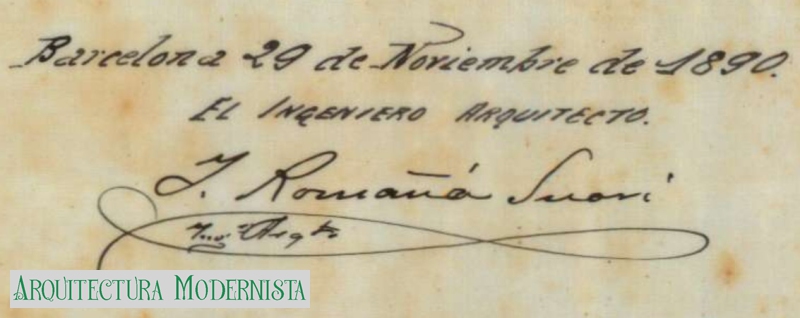 Barcelona 29 de Noviembre de 1890.
El Ingeniero Arquitecto.
J. Romañá Suari
Arqto
Arquitectura Modernista